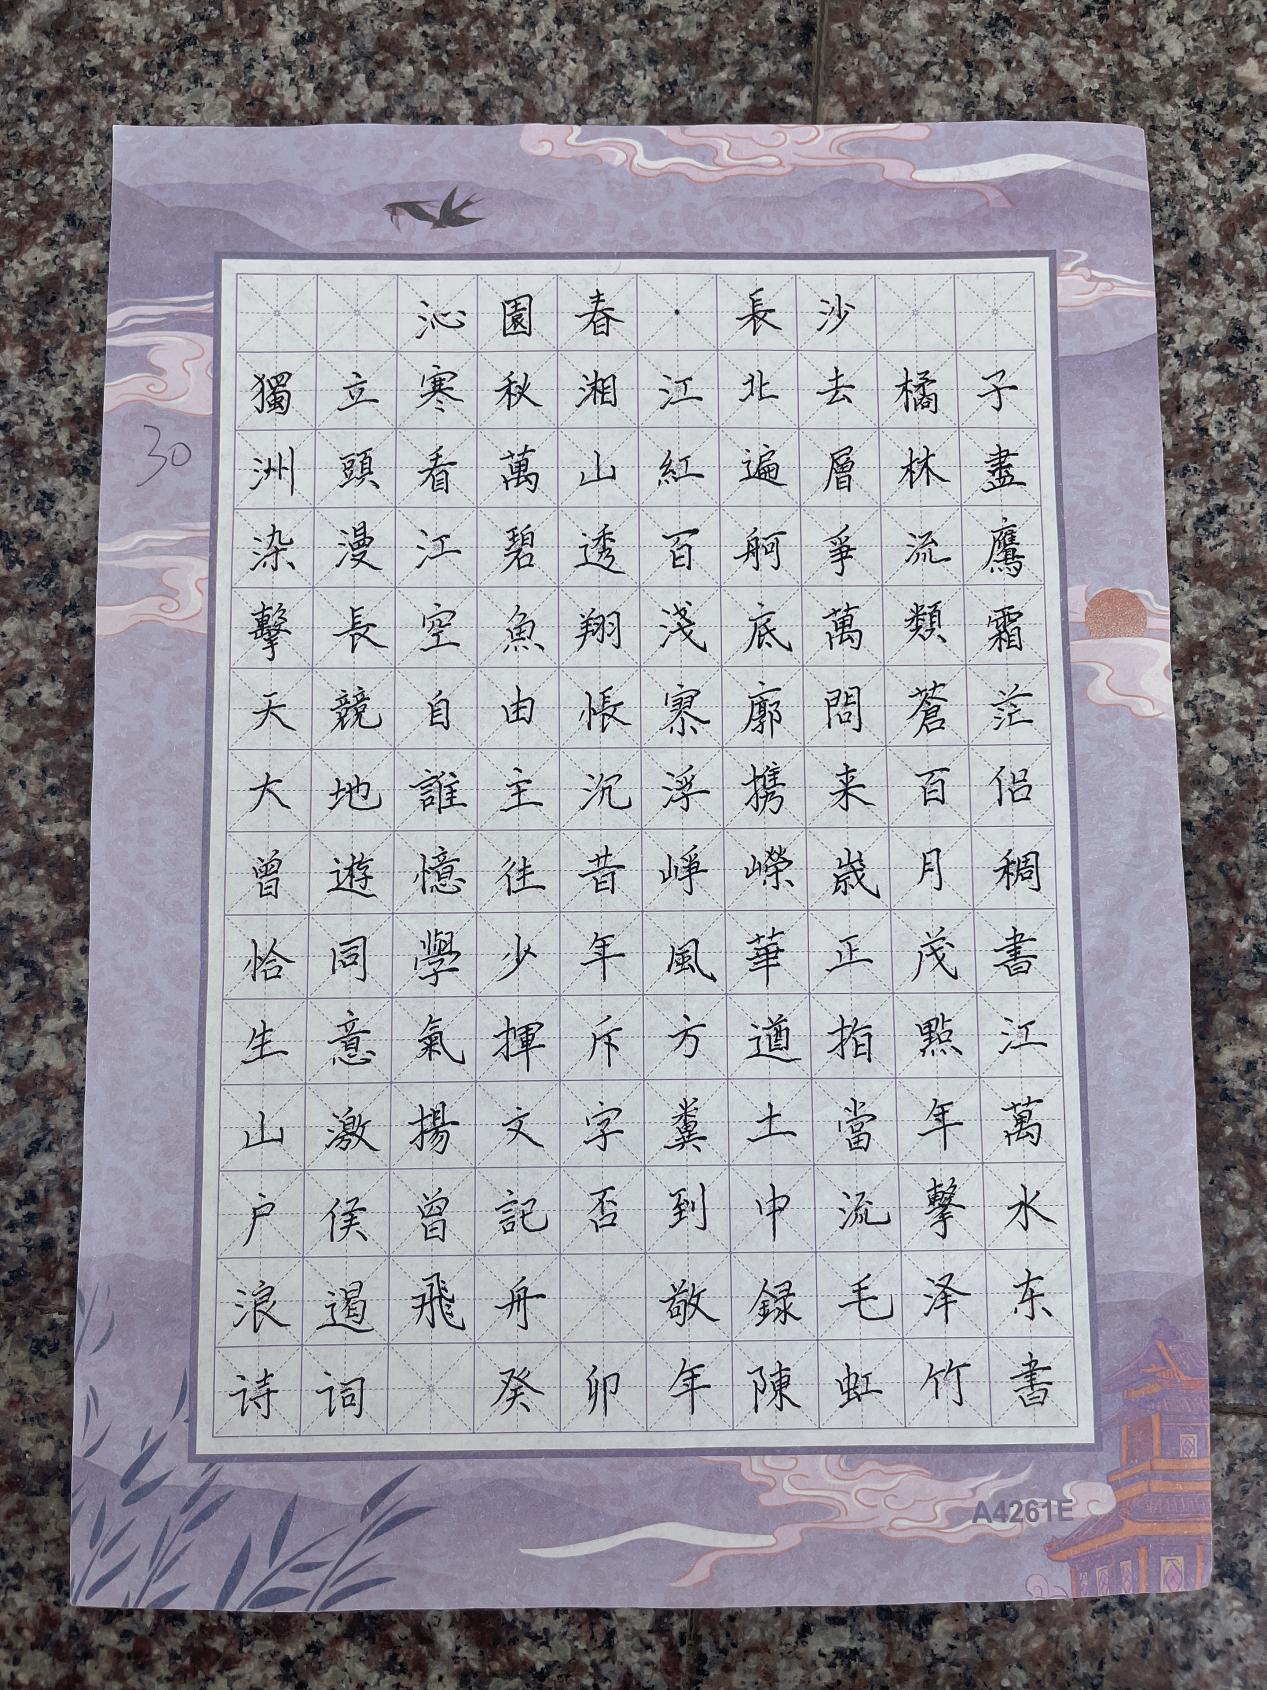 沁園春·長沙
獨立寒秋湘江北去橘子
洲頭看萬山紅遍層林盡
染漫江碧透百舸爭流鷹
擊長空魚翔淺底萬類霜
天競自由悵寥廓問蒼茫
大地誰主沉浮携来百侣
曾遊憶往昔崢嶸歲月稠
恰同學少年風華正茂書
生意氣揮斥方遒指點江
山激揚文字糞土當年萬
户侯曾記否到中流擊水
浪遏飛舟 敬録毛泽东
诗词 癸卯年陳虹竹書
30
A4261E